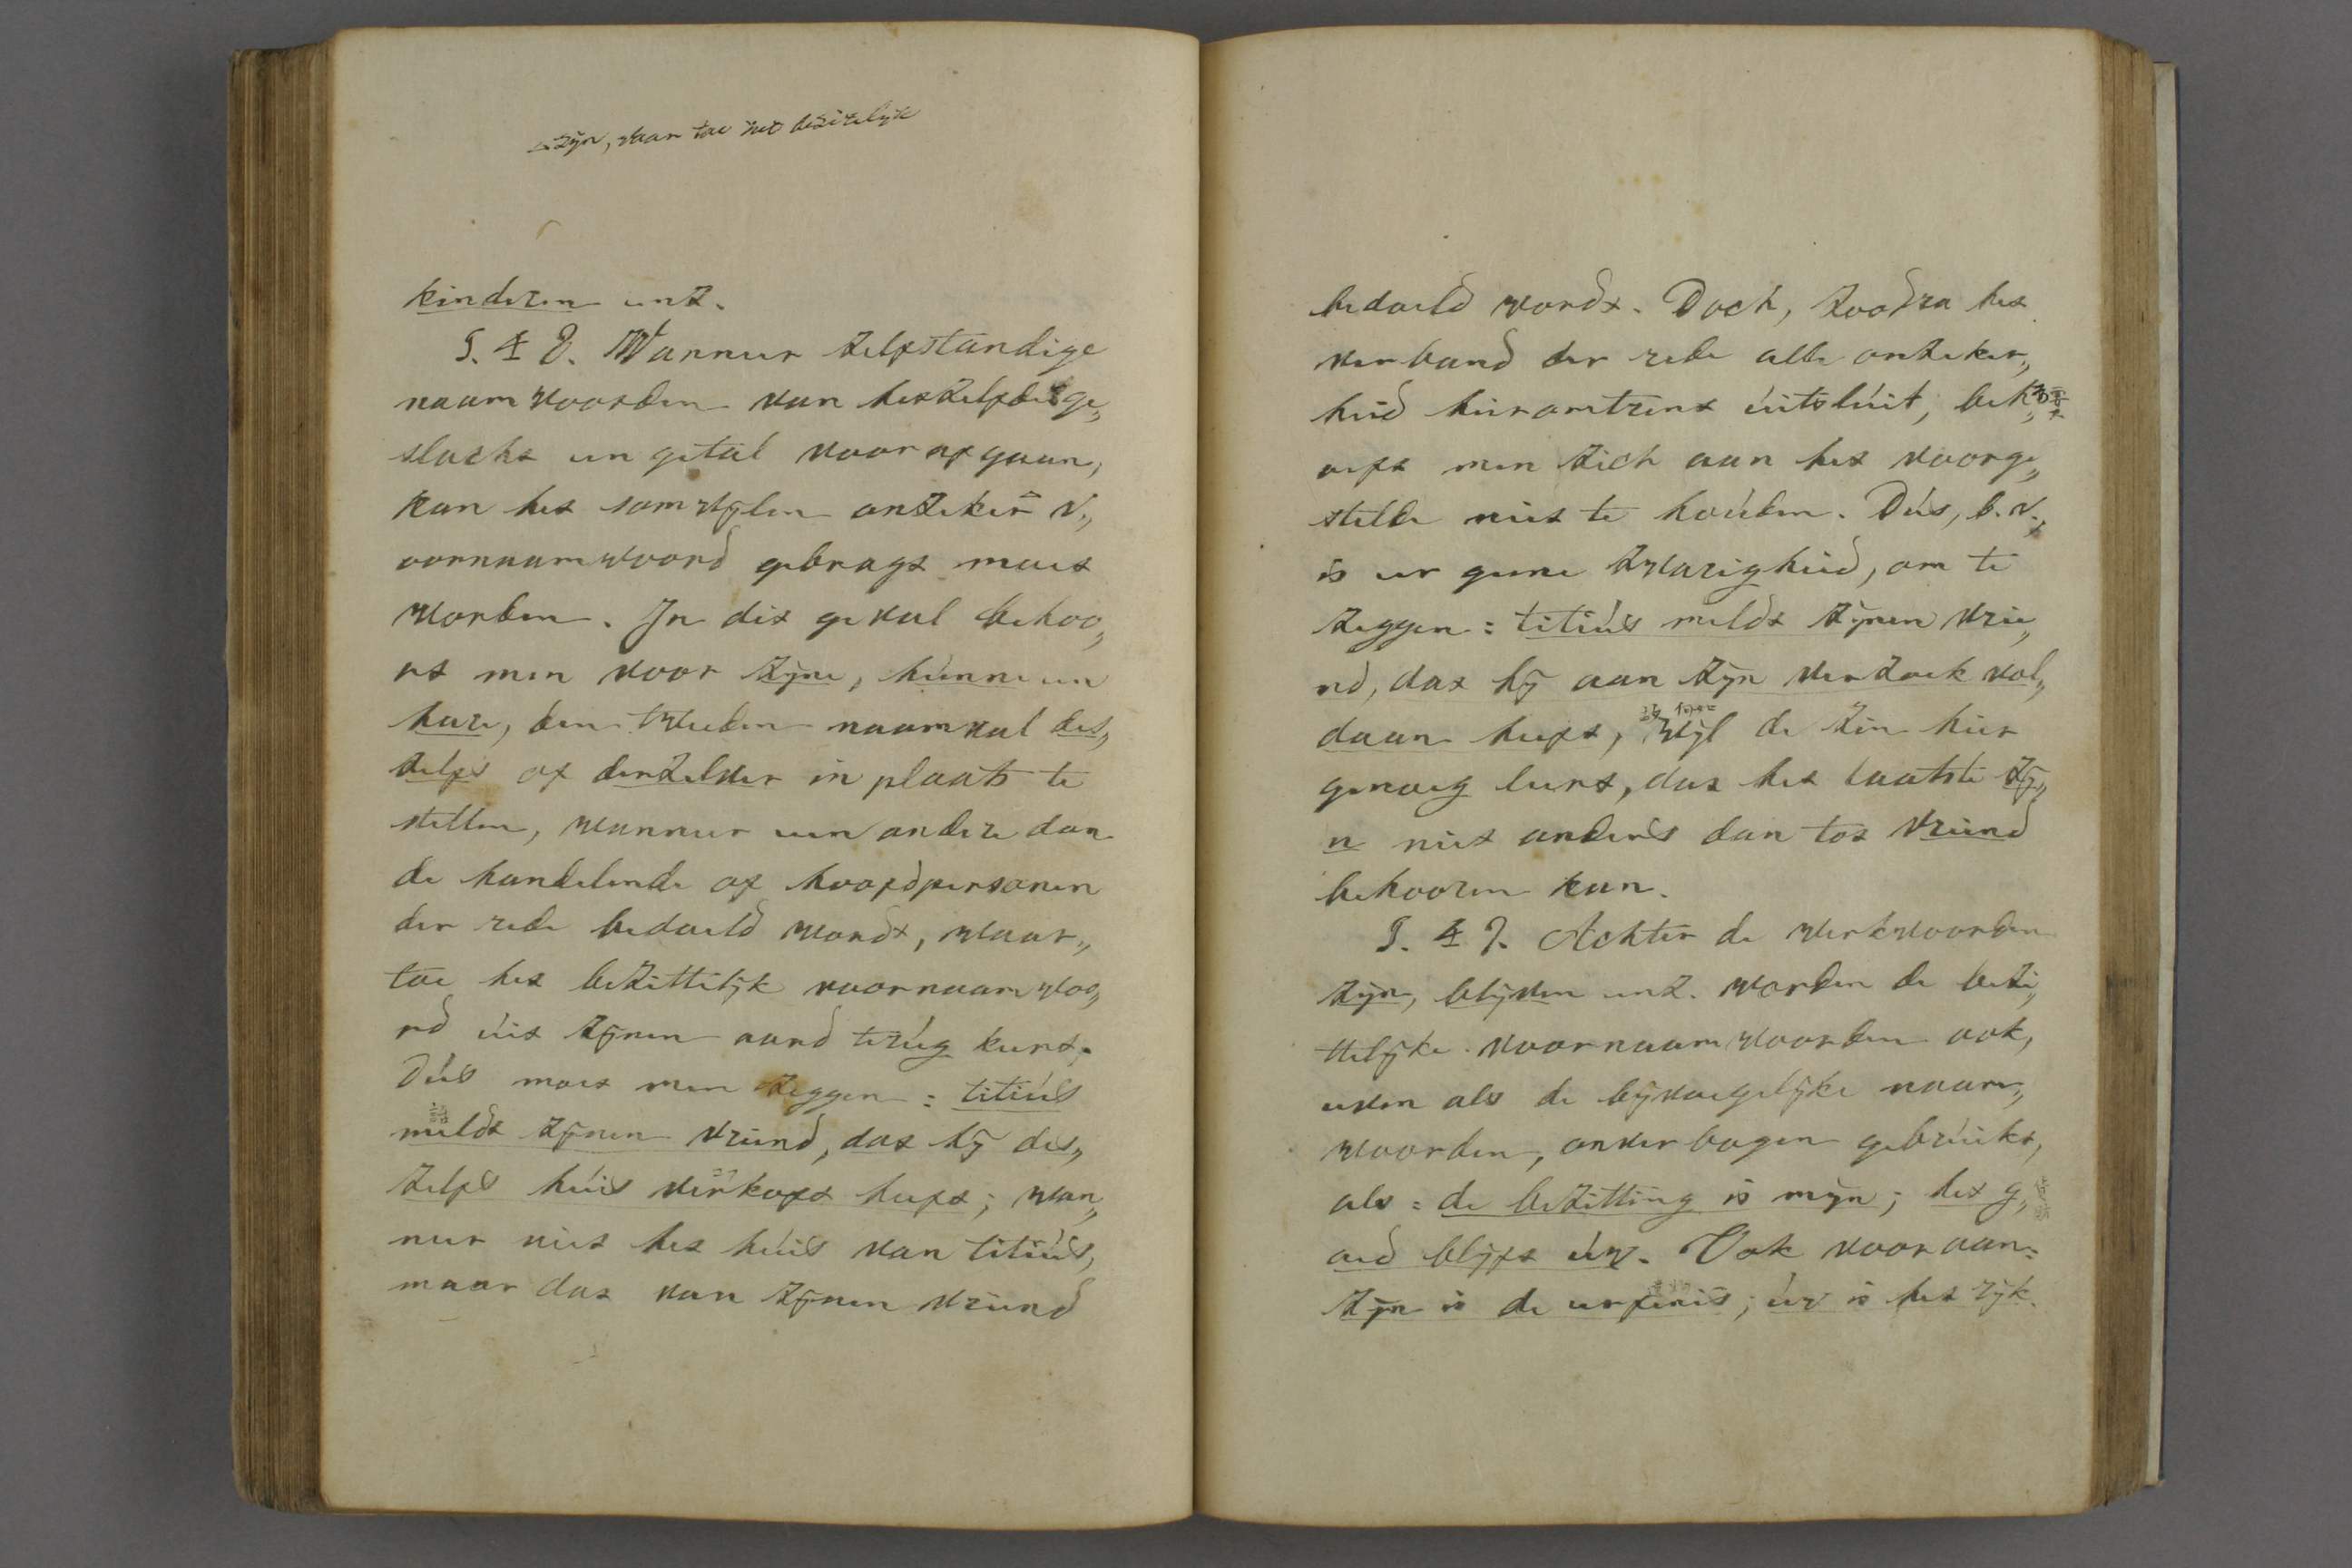 zijn, waar toe het bezitelijk
kinderen enz.
§. 48. Wanneer zelfstandige
naamwoorden van hetzelfde ge„
slacht en getal voorafgaan,
kan het somwijlen onzeker v„
oornaamwoord gebragt moet
worden. In dit geval behoo„
rt men voor zijne, hunne en
hare, den tweeden naamval des„
zelfs of derzelver in plaats te
stellen, wanneer een andere dan
de handelende of hoofdpersonen
der rede bedoeld wordt, waar„
toe het bezittelijk voornaamwoo„
rd úit zijnen aard terúg keert.
Dús moet men zeggen: titiús
meldt zijnen vriend, dat hij des„
zelfs húis verkoft heeft; wan„
neer niet het húis van titiús,
maar dat van zijnen vriend
bedoeld wordt. Doch, zoodra het
verband der rede alle onzeker„
heid hieromtrent úitslúit, beh„
oeft men zich aan het voorge„
stelde niet te hoúden. Dús, b.v.,
is er geene zwarigheid, om te
zeggen: titiús meldt zijnen vrie„
nd, dat hij aan zijn verzoek vol„
daan heeft, wijl de zin hier
genoeg leert, dat het laatste zij„
n niet anders dan tot vriend
behooren kan.
§. 49. Achter de werkwoorden
zijn, blijven enz. worden de bezi„
ttelijke voornaamwoorden ook,
even als de bijvoegelijke naam„
woorden, onverbogen gebrúikt,
als: de bezitting is mijn; het g„
oed blijft úw. Ook vooraan:
zijn is de erfenis; úw is het rijk.